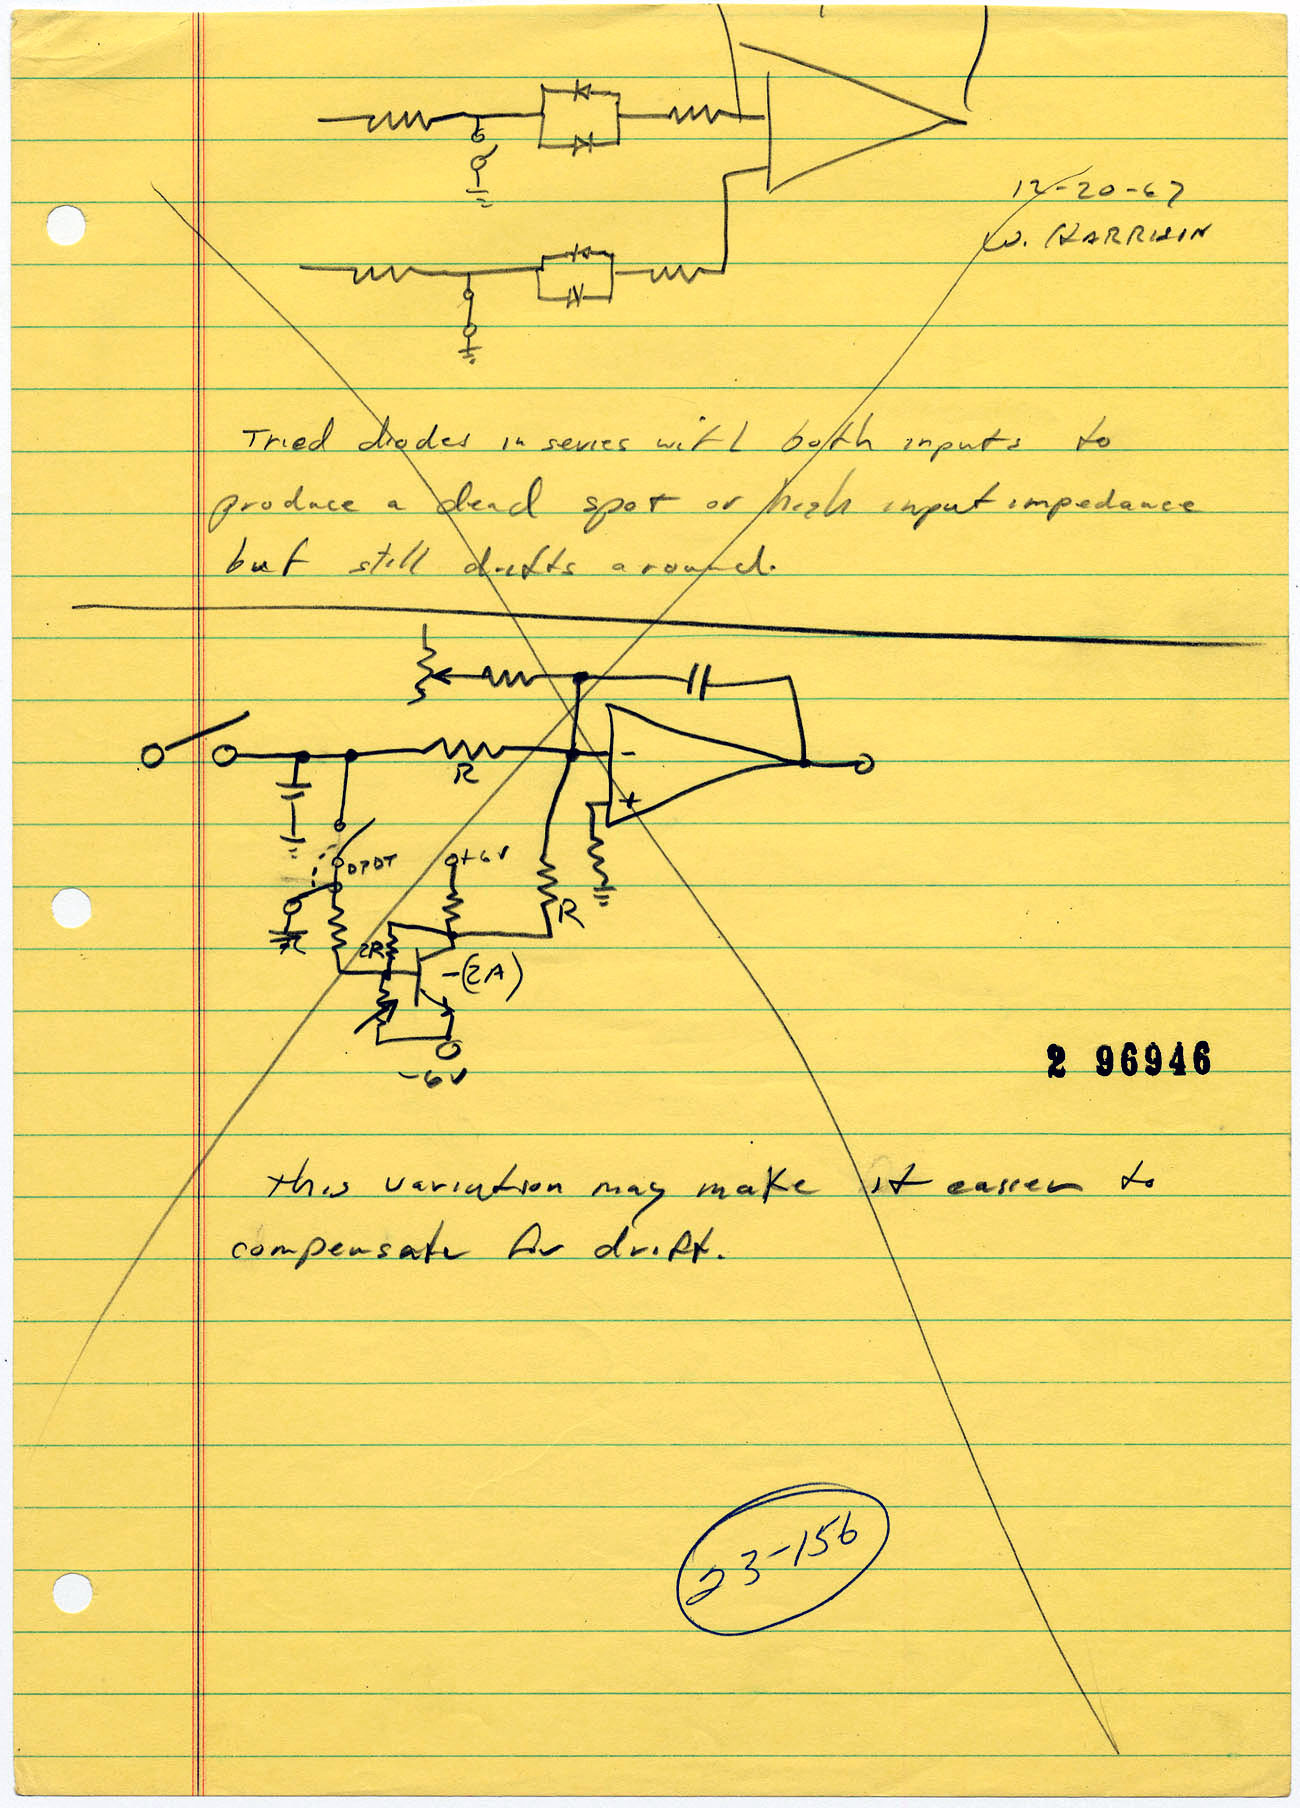 12-20-67
W. HARRISON
Tried diodes in series with both inputs to
produce a dead spot or high input impedance
but still drifts around.
R
-
+
DPDT
+6V
R
2R
-(2A)
-6V
2 96946
This variation may make it easier to
compensate for drift.
23-156